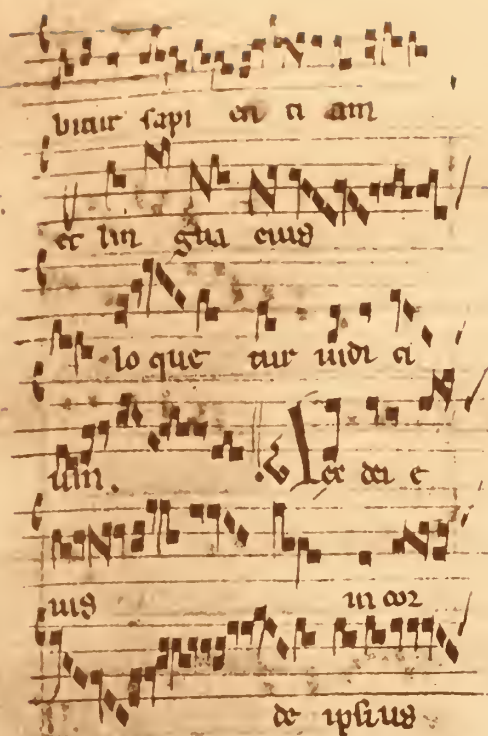 bitur sapi en ti am
et lin gua eius
lo que tur iudi ci
um. ℣ Lex dei e
ius in cor
de ipsius